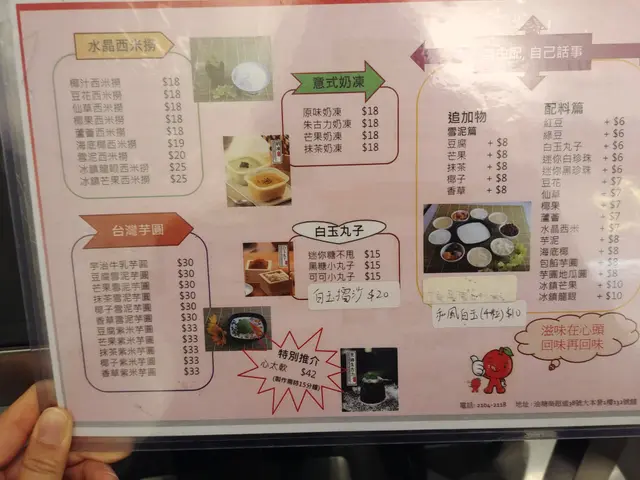 水晶西米撈
椰汁西米撈 $18
豆花西米撈 $18
仙草西米撈 $18
椰果西米撈 $18
蘆薈西米撈 $18
海底椰西米撈 $19
雪泥西米撈 $20
冰鎮龍眼西米撈 $25
冰鎮芒果西米撈 $25
台灣芋圓
芋泊牛乳芋圓 $30
豆腐雪泥芋圓 $30
芒果雪泥芋圓 $30
抹茶雪泥芋圓 $30
椰子雪泥芋圓 $30
香草雪泥芋圓 $30
豆腐紫米芋圓 $33
芒果紫米芋圓 $33
抹茶紫米芋圓 $33
椰子紫米芋圓 $33
香草紫米芋圓 $33
意式奶凍
原味奶凍 $18
朱古力奶凍 $18
芒果奶凍 $18
抹茶奶凍 $18
白玉丸子
迷你糖不甩 $15
黑糖小丸子 $15
可可小丸子 $15
白玉擂沙 $20
特別推介
心太軟 $42
(製作需時15分鐘)
自己話事
追加物
雪泥篇
豆腐 + $8
芒果 + $8
抹茶 + $8
椰子 + $8
香草 + $8
和風白玉(4粒) $10
配料篇
紅豆 + $6
綠豆 + $6
白玉丸子 + $6
迷你白珍珠 + $6
迷你黑珍珠 + $6
豆花 + $7
仙草 + $7
椰果 + $7
蘆薈 + $7
水晶西米 + $7
芋泥 + $8
海底椰 + $8
包餡芋圓 + $8
芋圓地瓜圓 + $8
冰鎮芒果 + $10
冰鎮龍眼 + $10
滋味在心頭
回味再回味
電話: 2104-2228